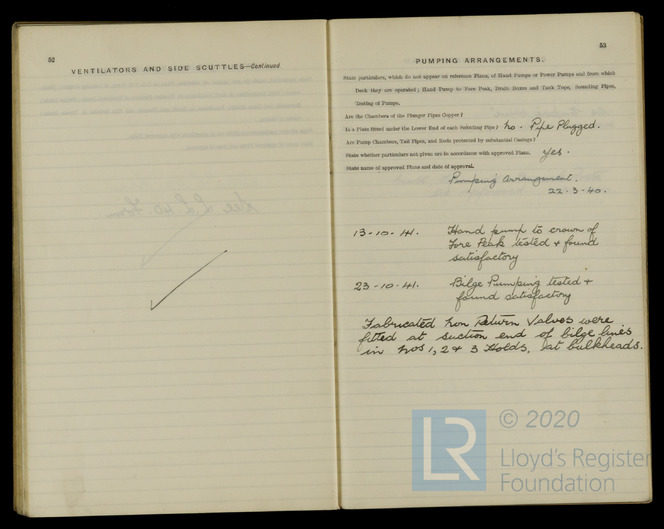 52
VENTILATORS AND SIDE SCUTTLES—Continued
53
PUMPING ARRANGEMENTS.
State particulars, which do not appear on reference Plans, of Hand Pumps or Power Pumps and from which
Deck they are operated; Hand Pump to Fore Peak, Drain Boxes and Tank Tops, Sounding Pipes,
Testing of Pumps.
Are the Chambers of the Plunger Pipes Copper?
Is a Plate fitted under the Lower End of each Sounding Pipe? No - Pipe Plugged.
Are Pump Chambers, Tail Pipes, and Rods protected by substantial Casings?
State whether particulars not given are in accordance with approved Plans. Yes.
State name of approved Plans and date of approval.
Pumping Arrangement.
22-3-40.
13-10-41. Hand pump to crown of
Fore Peak tested & found
satisfactory
23-10-41. Bilge Pumping tested &
found satisfactory
Fabricated Non Return Valves were
fitted at suction end of bilge lines
in Nos 1, 2 & 3 Holds, at bulkheads.
LR
© 2020
Lloyd's Register
Foundation